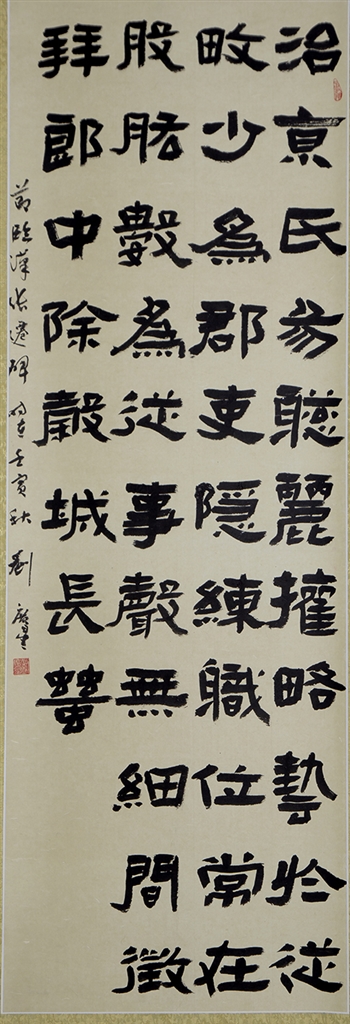 治京氏易聰麗權略藝於從
畋少為郡吏隱練職位常在
股肱數為從事聲無細間徵
拜郎中除穀城長蠶
節臨漢張遷碑時在壬寅秋劉